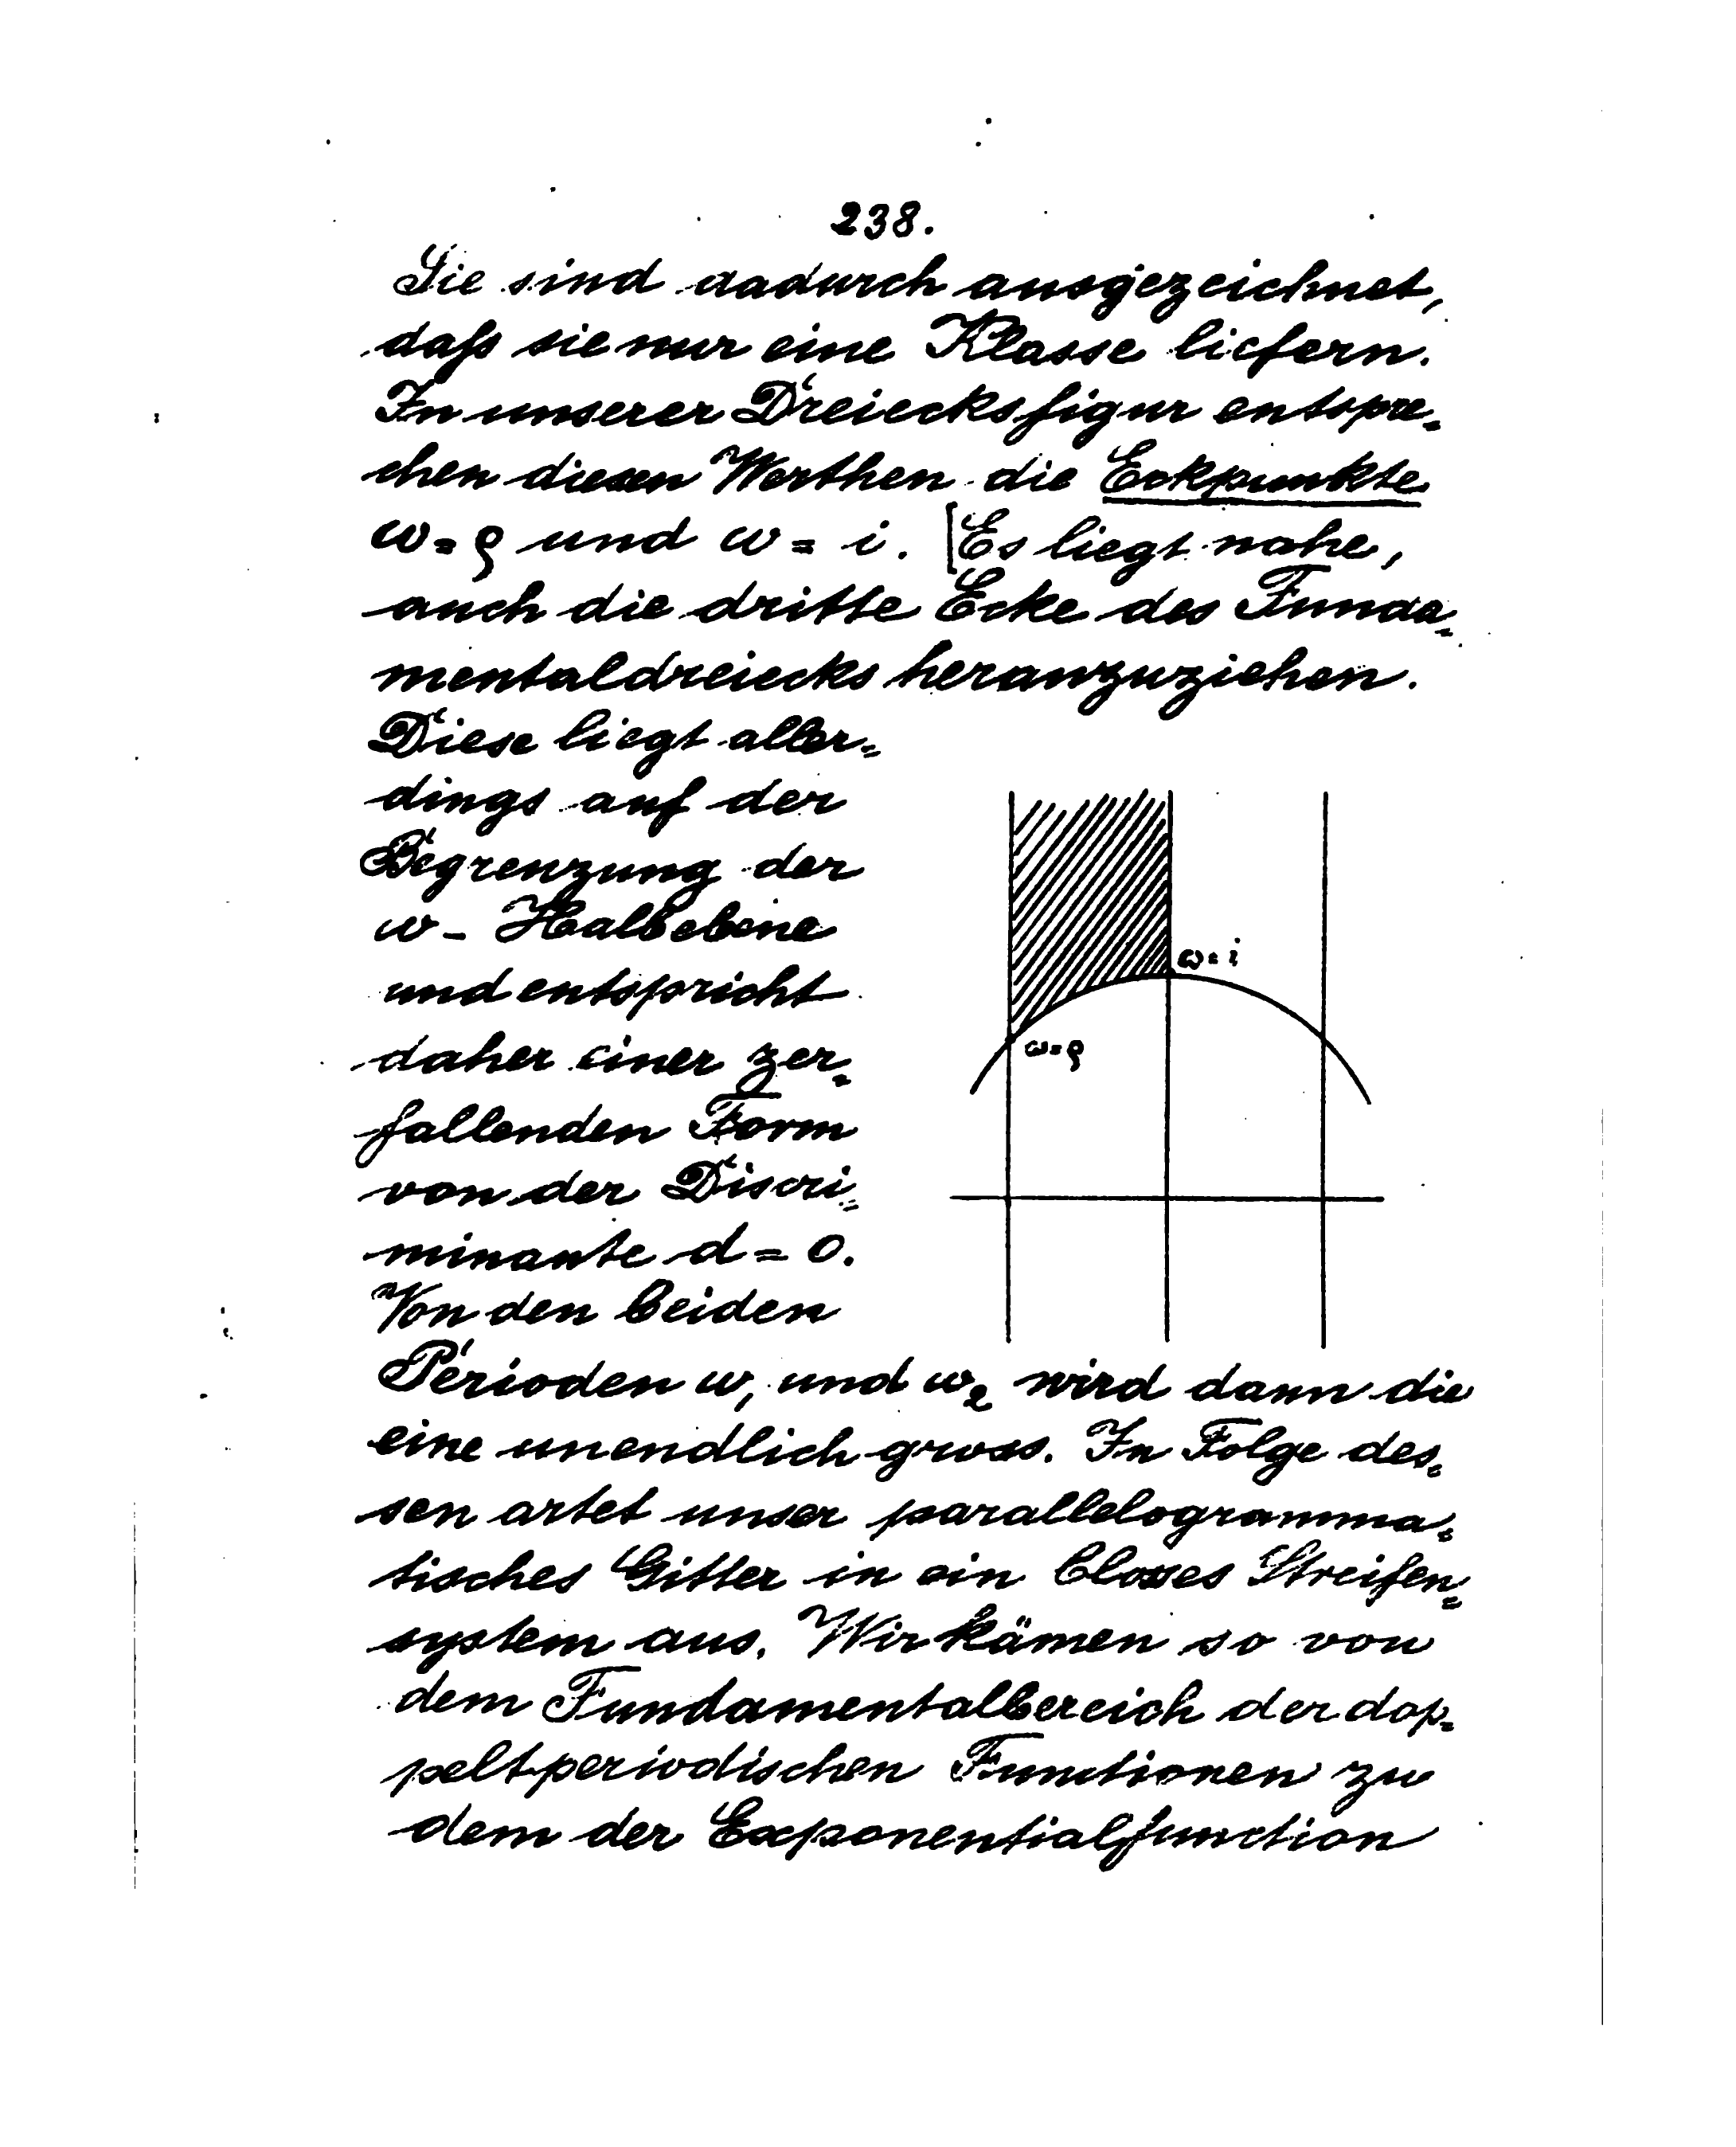 238.
Sie sind dadurch ausgezeichnet,
daß sie nur eine Klasse liefern.
In unserer Dreiecksfigur entspre-
chen diesen Werthen die Eckpunkte
ω = ϱ und ω = i. [Es liegt nahe,
auch die dritte Ecke des Funda-
mentaldreiecks heranzuziehen.
Diese liegt aller-
dings auf der
Begrenzung der
ω - Halbebene
und entspricht
daher einer zer-
fallenden Form
von der Discri-
minante d = 0.
Von den beiden
ω = i
ω = ϱ
Perioden ω₁ und ω₂ wird dann die
eine unendlich gross. In Folge des-
sen artet unser parallelogramma-
tisches Gitter in ein blosses Streifen-
system aus. Wir kämen so von
dem Fundamentalbereich der dop-
peltperiodischen Functionen zu
dem der Exponentialfunction